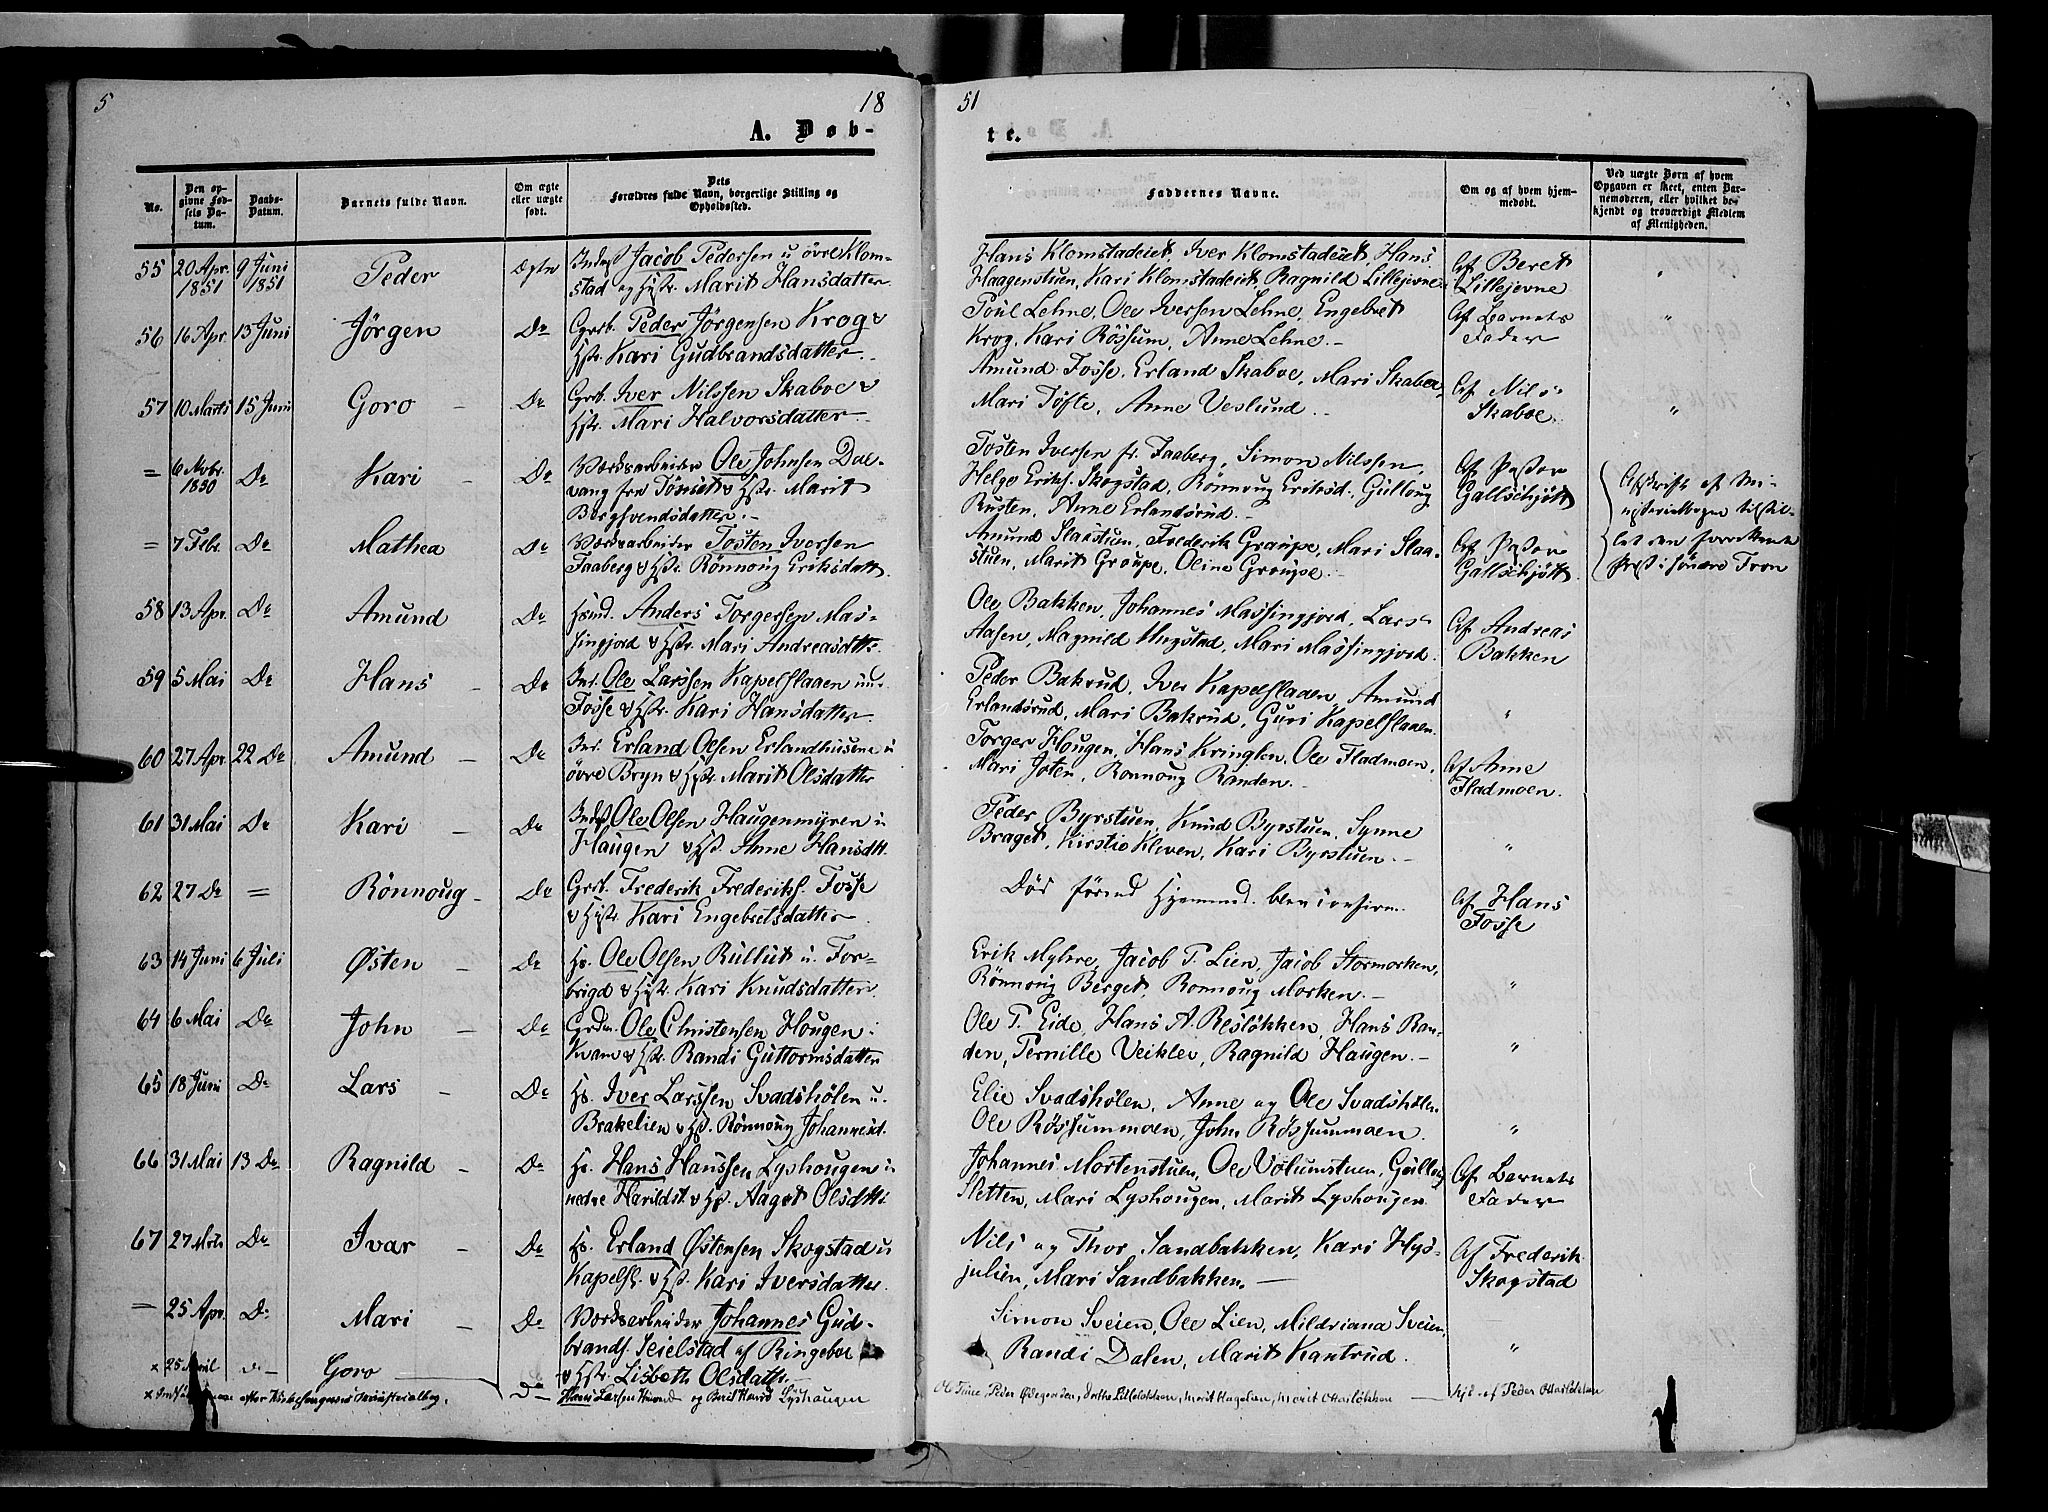 5
18
51
A. Døb-
te.
No.
Den op-
givne Fød-
sels Da-
tum.
Daabs-
Datum.
Barnets fulde Navn.
Om ægte
eller uægte
født.
Dets
Forældres fulde Navn, borgerlige Stilling og
Opholdssted.
Faddernes Navne.
Om og af hvem hjem-
medøbt.
Ved uægte Børn af hvem
Opgaven er skeet, enten Bar-
nemoderen, eller hvilket be-
kjendt og troværdigt Medlem
af Menigheden.
55 20 Apr. 1851 9 Juni 1851 Peder Ægte
Jacob Pedersen u øvre Klom-
stad og Hstr. Marit Hansdatter
Hans Klomstadeiet, Iver Klomstadeiet, Hans
Haagenstuen, Kari Klomstadeiet, Ragnild Lillejevne
Af Beret
Lillejevne
"
56 16 Apr. 13 Juni Jörgen Do
Grb. Peder Jörgensen Krog &
Hstr. Kari Gudbrandsdatter.
Poul Lehne, Ole Iversen Lehne, Engebret
Krog, Kari Rössum, Anne Lehne.
Af Barnets
Fader
"
57 10 Marts 15 Juni Goro Do
Grb. Iver Nilssen Skaboe &
Hstr. Mari Halvorsdatter
Amund Fosse, Erland Skaboe, Mari Skaboe,
Mari Tofte, Anne Veslund.
Af Nils
Skaboe
"
= 6 Novbr. 1850 Do Kari Do
Værksarbeider Ole Johnsen Dal-
vang fra Tönset & Hstr. Marit
Bergsvendsdatter.
Tosten Iversen fr. Faaberg, Simon Nilssen,
Helge Eriks. Skogstad, Rönnoug Eriksd., Gulloug
Rusten, Anne Erlandsrud.
Af Pastor
Gallschjött
Afskrift af Mi-
nisterialbogen tilstil-
let den forrettende
Præst i söndre Fron
= 7 Febr. Do Mathea Do
Værksarbeider Tosten Iversen
Faaberg & Hstr. Rönnoug Eriksdatt.
Amund Slaastuen, Frederik Graupe, Mari Slaa-
stuen, Marit Graupe, Oline Graupe.
Af Pastor
Gallschjött.
58 13 Apr. Do Amund Do
Hsmd. Anders Torgersen Mas-
singjord & Hstr. Mari Andreasdtt.
Ole Bakken, Johannes Massingjord, Lars
Aasen, Magnild Hugstad, Mari Massingjord.
Af Andreas
Bakken
59 5 Mai Do Hans Do
Ole Larssen Kapelslaaen un.
Fosse & Hstr. Kari Hansdatter
Peder Bakrud, Iver Kapelsladen, Amund
Erlandsrud, Mari Bakrud, Guri Kapelslaaen.
"
60 27 Apr. 22 Do Amund Do
Erland Olsen Erlandhusene u
övre Bryn & Hstr. Marit Olsdatter
Torger Hougen, Hans Kringlen, Ole Fladmoen,
Mari Joten, Ronnoug Randen.
Af Anne
Fladmoen.
61 31 Mai Do Kari Do
Ole Olsen Haugenmyren u
Haugen & Hst. Anne Hansdtt.
Peder Byrstuen, Knud Byrstuen, Synne
Braget, Kirstie Kleven, Kari Byrstuen.
"
62 27 Do = Rönnoug Do
Grb. Frederik Frederiks. Fosse
& Hstr. Kari Engebretsdatter
Död förend Hjemmed. blev confirm.
Af Hans
Fosse
63 14 Juni 6 Juli Østen Do
Hs. Ole Olsen Rullut u. For-
brigd & Hstr. Kari Knudsdatter.
Erik Myhre, Jacob P. Lien, Jacob Stormorken,
Rönnoug Berget, Ronnoug Morken.
"
64 6 Mai Do John Do
Grdm. Ole Christensen Hougen i
Kvam & Hstr. Randi Guttormsdatter
Ole P. Eide, Hans A. Reslökken, Hans Ran-
den, Pernille Veikle, Ragnild Haugen.
"
65 18 Juni Do Lars Do
Hs. Iver Larssen Svadshölen u.
Brakelien & Hst. Rönnoug Johannesd.
Elie Svadshölen, Anne og Ole Svadshölen
Ole Rössummoen, John Rössummoen.
"
66 31 Mai 13 Do Ragnild Do
Hs. Hans Hanssen Lyshougen u
nedre Harildst. & Hst. Aagot Olsdtt.
Johannes Mortenstuen, Ole Volumstuen, Gulloug
Sletten, Mari Lyshougen, Marit Lyshougen
Af Barnets
Fader
67 27 Mrts Do Ivar Do
Hs. Erland Østensen Skogstad u
Kapelsl. & Hst. Kari Iversdatter
Nils og Thor Sandbakken, Kari Hys-
julien, Mari Sandbakken.
Af Frederik
Skogstad
= 25 Apr. Do Mari Do
Værksarbeider Johannes Gud-
brands. Seielstad af Ringeboe
& Hstr. Lisbeth Olsdatter
Simon Sveien, Ole Lien, Mildriana Sveien,
Randi Dalen, Marit Kantrud.
"
× 25 April do Goro
× efter Klokkerens Ministerialbog. do Hans Larsen
Lyshaugen
Peder Ødegarden, Marit Hagelien
hjd. af Peder Ottarsløkken